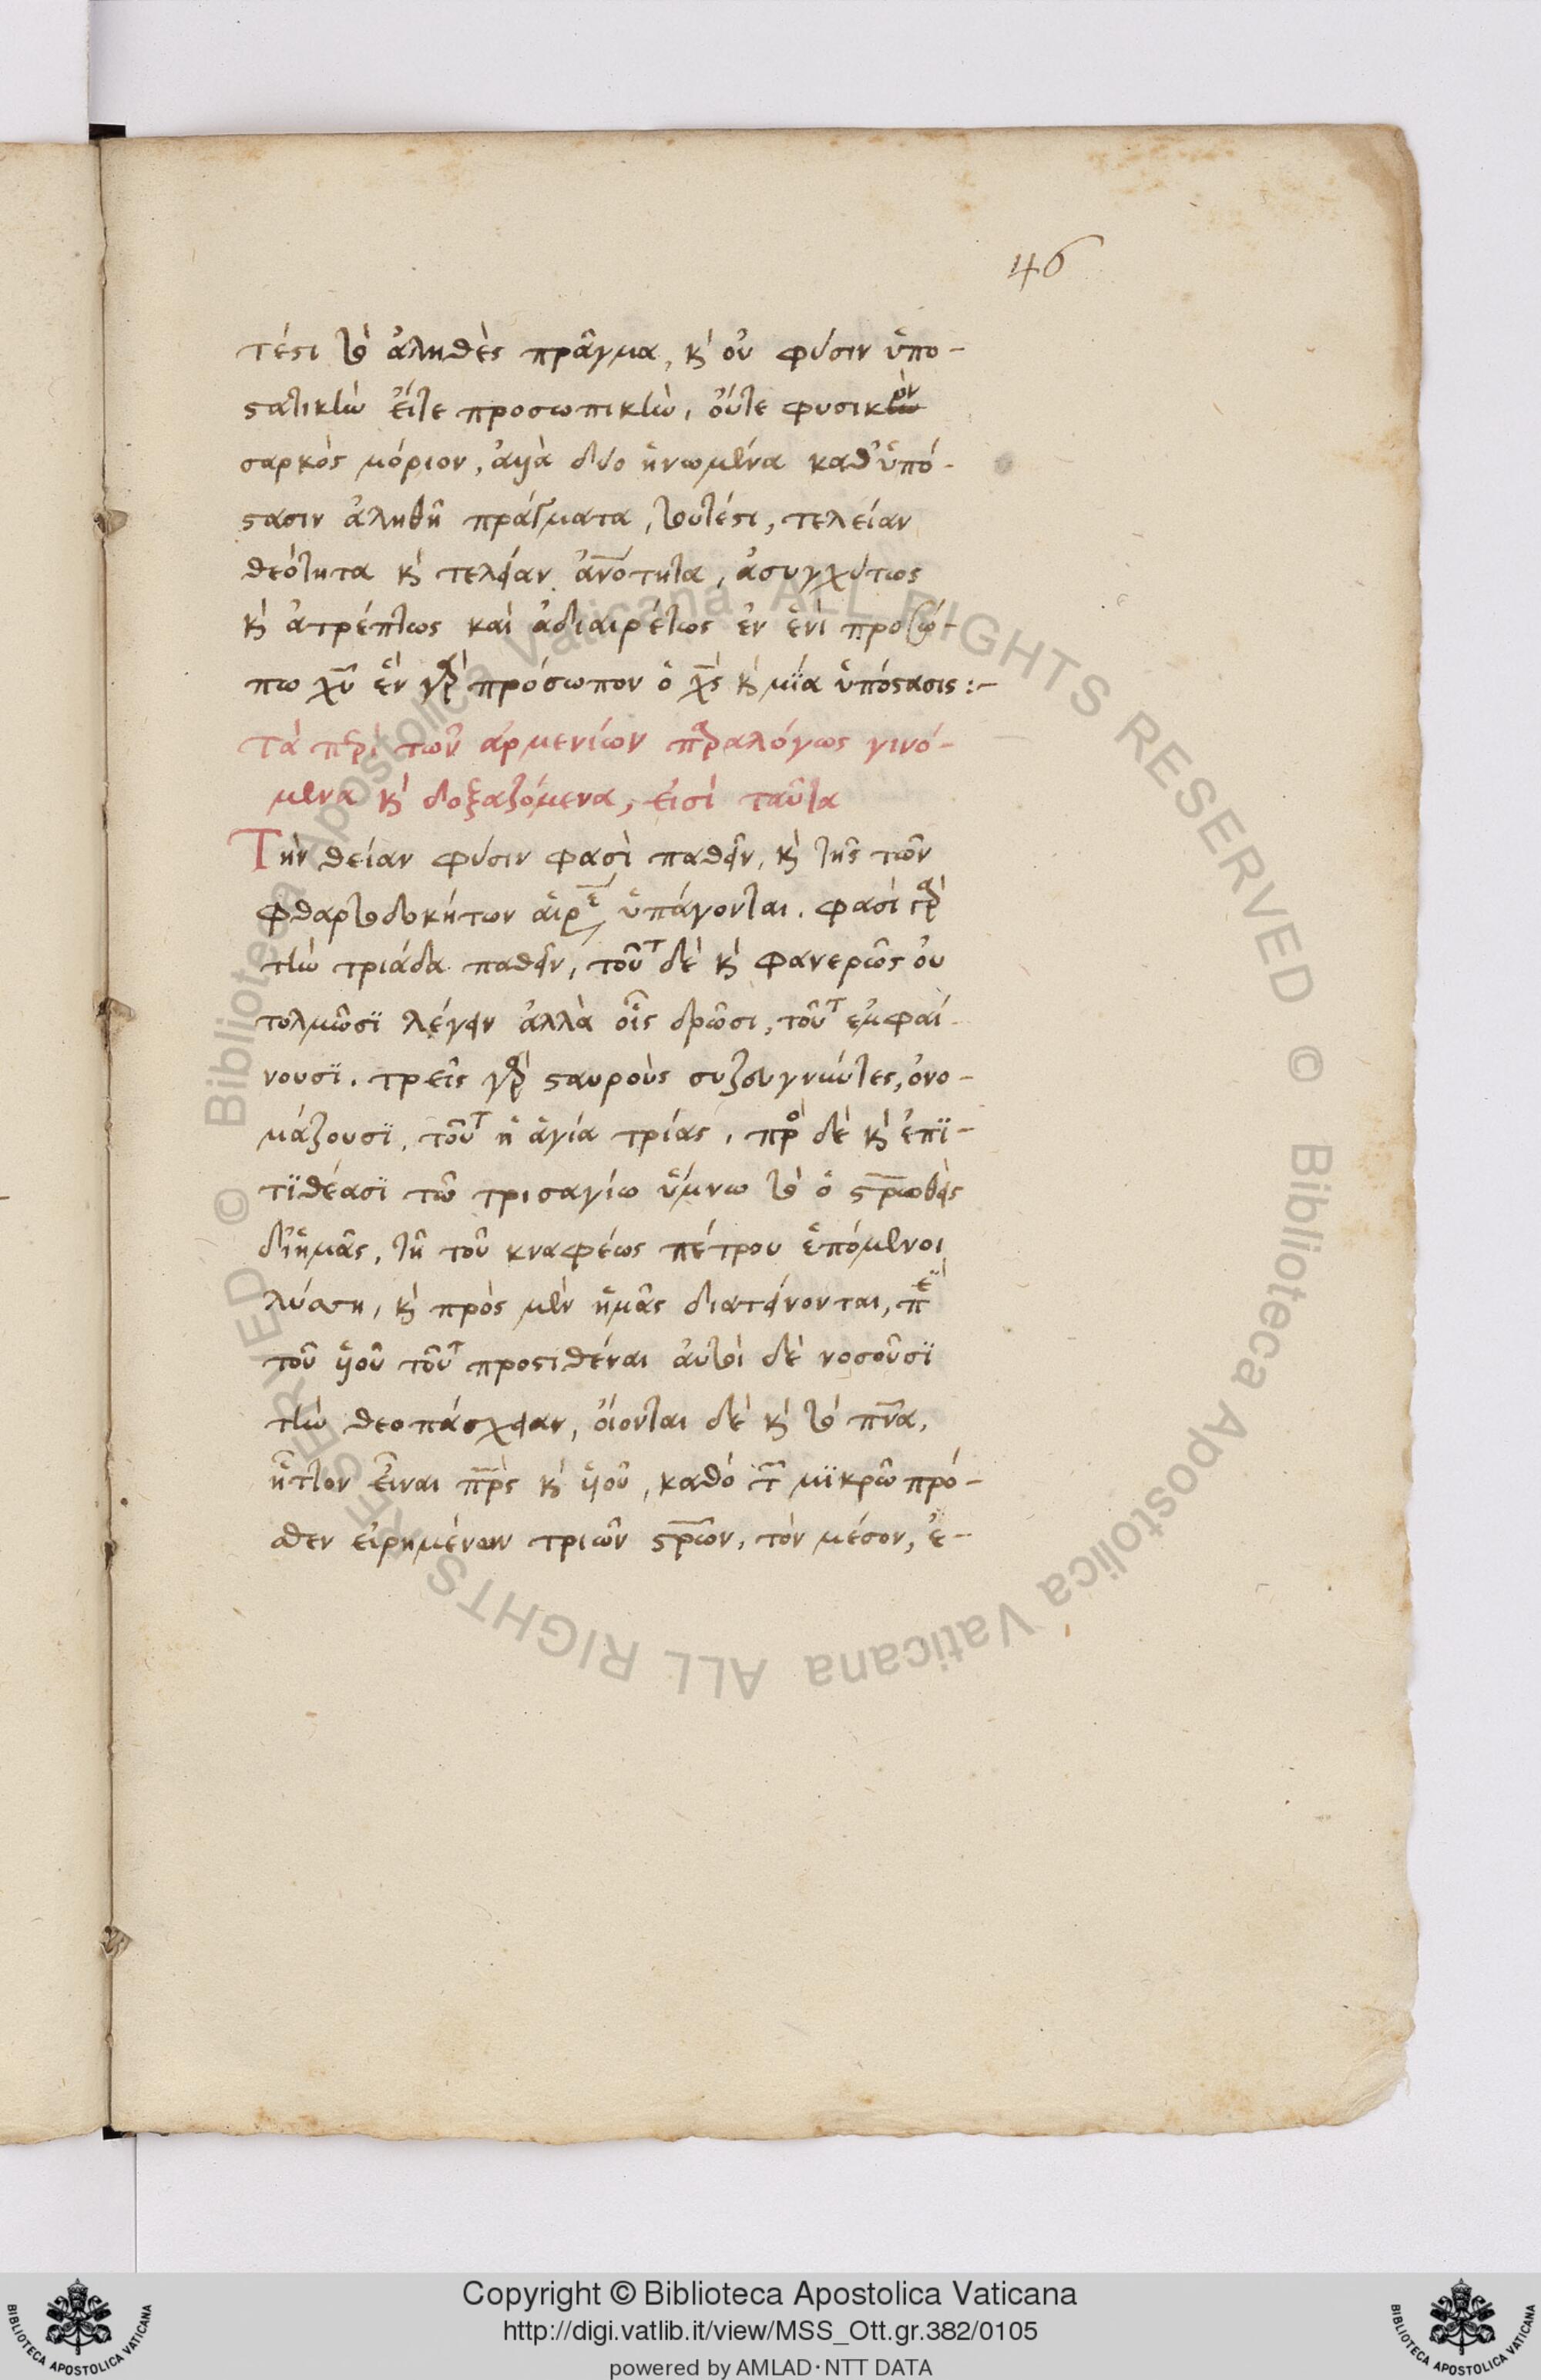 46
τέστι τὸ ἀληθὲς πρᾶγμα, κὶ οὐ φύσιν ὑπο-
στατικὴν εἴτε προσωπικὴν, οὔτε φυσικὸν
σαρκὸς μόριον, ἀλλὰ δύο ἡνωμένα καθ' ὑπό-
στασιν ἀληθῆ πράγματα, τουτέστι, τελείαν
θεότητα κὶ τελείαν ἀνότητα, ἀσυγχύτως
κὶ ἀτρέπτως καὶ ἀδιαιρέτως ἐν ἑνὶ προσώ-
πω χυ ἓν γὰρ πρόσωπον ὁ χς κὶ μία ὑπόστασις :-
τὰ περὶ τῶν ἀρμενίων παραλόγως γινό-
μενα κὶ δοξαζόμενα, εἰσὶ ταῦτα
Τὴν θείαν φύσιν φασὶ παθεῖν, κὶ τῆς τῶν
φθαρτοδοκήτων αἱρέ ὑπάγονται. φασὶ γὰρ
τὴν τριάδα παθεῖν, τοῦτ δὲ κὶ φανερῶς οὐ
τολμῶσϊ λέγειν ἀλλὰ οἷς δρῶσι, τοῦτ ἐμφαί-
νουσϊ. τρεῖς γὰρ σταυροὺς συζευγνύντες, ὀνο-
μάζουσϊ, τοῦτ ἡ ἁγία τρίας, πρὸ δὲ κὶ ἐπϊ-
τϊθέασϊ τῶ τρισαγίω ὕμνω τὸ ὁ στρωθεὶς
δι' ἡμᾶς, τῆ τοῦ κναφέως πέτρου ἑπόμενοι
λύσση, κὶ πρὸς μὲν ἡμᾶς διατείνονται, πὲ
τοῦ υἱοῦ τοῦτ προστιθέναι αὐτοὶ δὲ νοσοῦσϊ
τὴν θεοπάσχειαν, οἴονται δὲ κὶ τὸ πνα,
ἧττον εἶναι πρς κὶ υἱοῦ, καθὸ τ μϊκρῶ πρό-
σθεν εἰρημένων τριῶν στρων, τὸν μέσον, ἐ-
Copyright © Biblioteca Apostolica Vaticana
http://digi.vatlib.it/view/MSS_Ott.gr.382/0105
powered by AMLAD·NTT DATA
© Biblioteca Apostolica Vaticana ALL RIGHTS RESERVED © Biblioteca Apostolica Vaticana ALL RIGHTS RESERVED
BIBLIOTECA APOSTOLICA VATICANA
BIBLIOTECA APOSTOLICA VATICANA